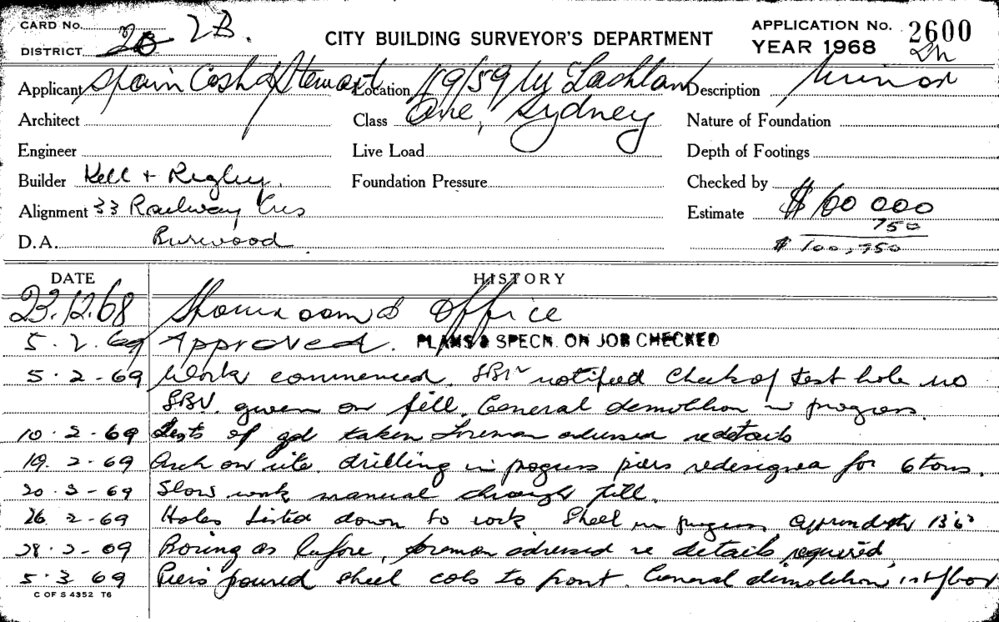 CARD No. 2B
DISTRICT
CITY BUILDING SURVEYOR'S DEPARTMENT
APPLICATION No. 2600
YEAR 1968
Applicant Spain Cosh & Stewart Location 49/59 Lachlan Description Minor
Architect Class Ave, Sydney Nature of Foundation
Engineer Live Load Depth of Footings
Builder Kell + Rigby. Foundation Pressure Checked by
Alignment 33 Railway Cres Estimate $100 000
750
D.A. Burwood $ 100,750
DATE HISTORY
23.12.68 Showroom & Office
5.2.69 Approved. PLANS & SPECN. ON JOB CHECKED
5-2-69 Work commenced. notified Check of test hole no
given on fill. General demolition in progress.
10-2-69 Tests of gd taken Foreman advised re details
19.2-69 Arch on site drilling in progress piers redesigned for 6 tons.
20-3-69 Slow work manual through fill.
26.2-69 Holes down to rock Steel in progress approx depth 13'6"
28-2-69 Boring as before, foreman advised re details required
5-3 69 Piers poured steel cols to front. General demolition
C OF S 4352 T6